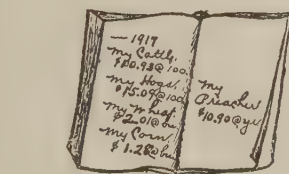 — 1917
My Cattle.
$10.93@100.
My Hogs.
$15.09@100
My Wheat.
$2.01@bu.
My Corn.
$1.28@bu.
My
Preacher
$10.90@yr.